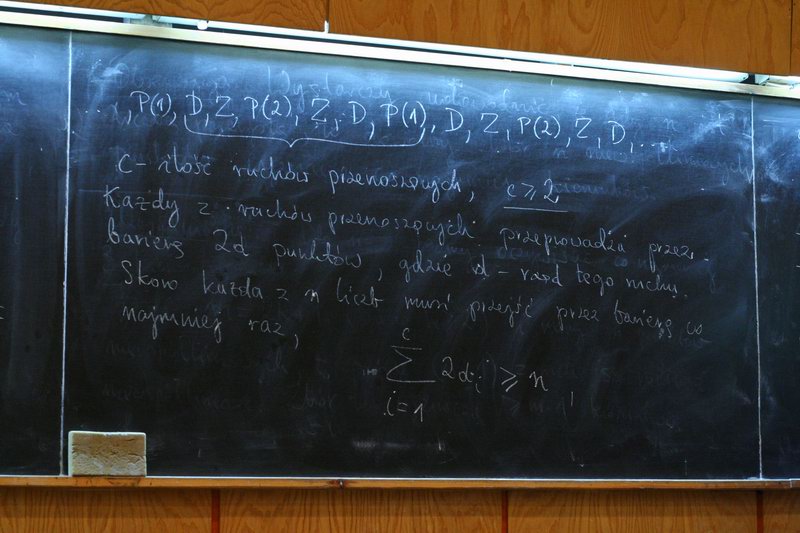 ..., P(1), D, Z, P(2), Z, D, P(1), D, Z, P(2), Z, D, ...
c - ilość ruchów przenoszących, c ≥ 2
Każdy z ruchów przenoszących przeprowadza przez
barierę 2d punktów, gdzie d - rząd tego ruchu.
Skoro każda z n liczb musi przejść przez barierę co
najmniej raz,
c
∑ 2d_i ≥ n,
i=1